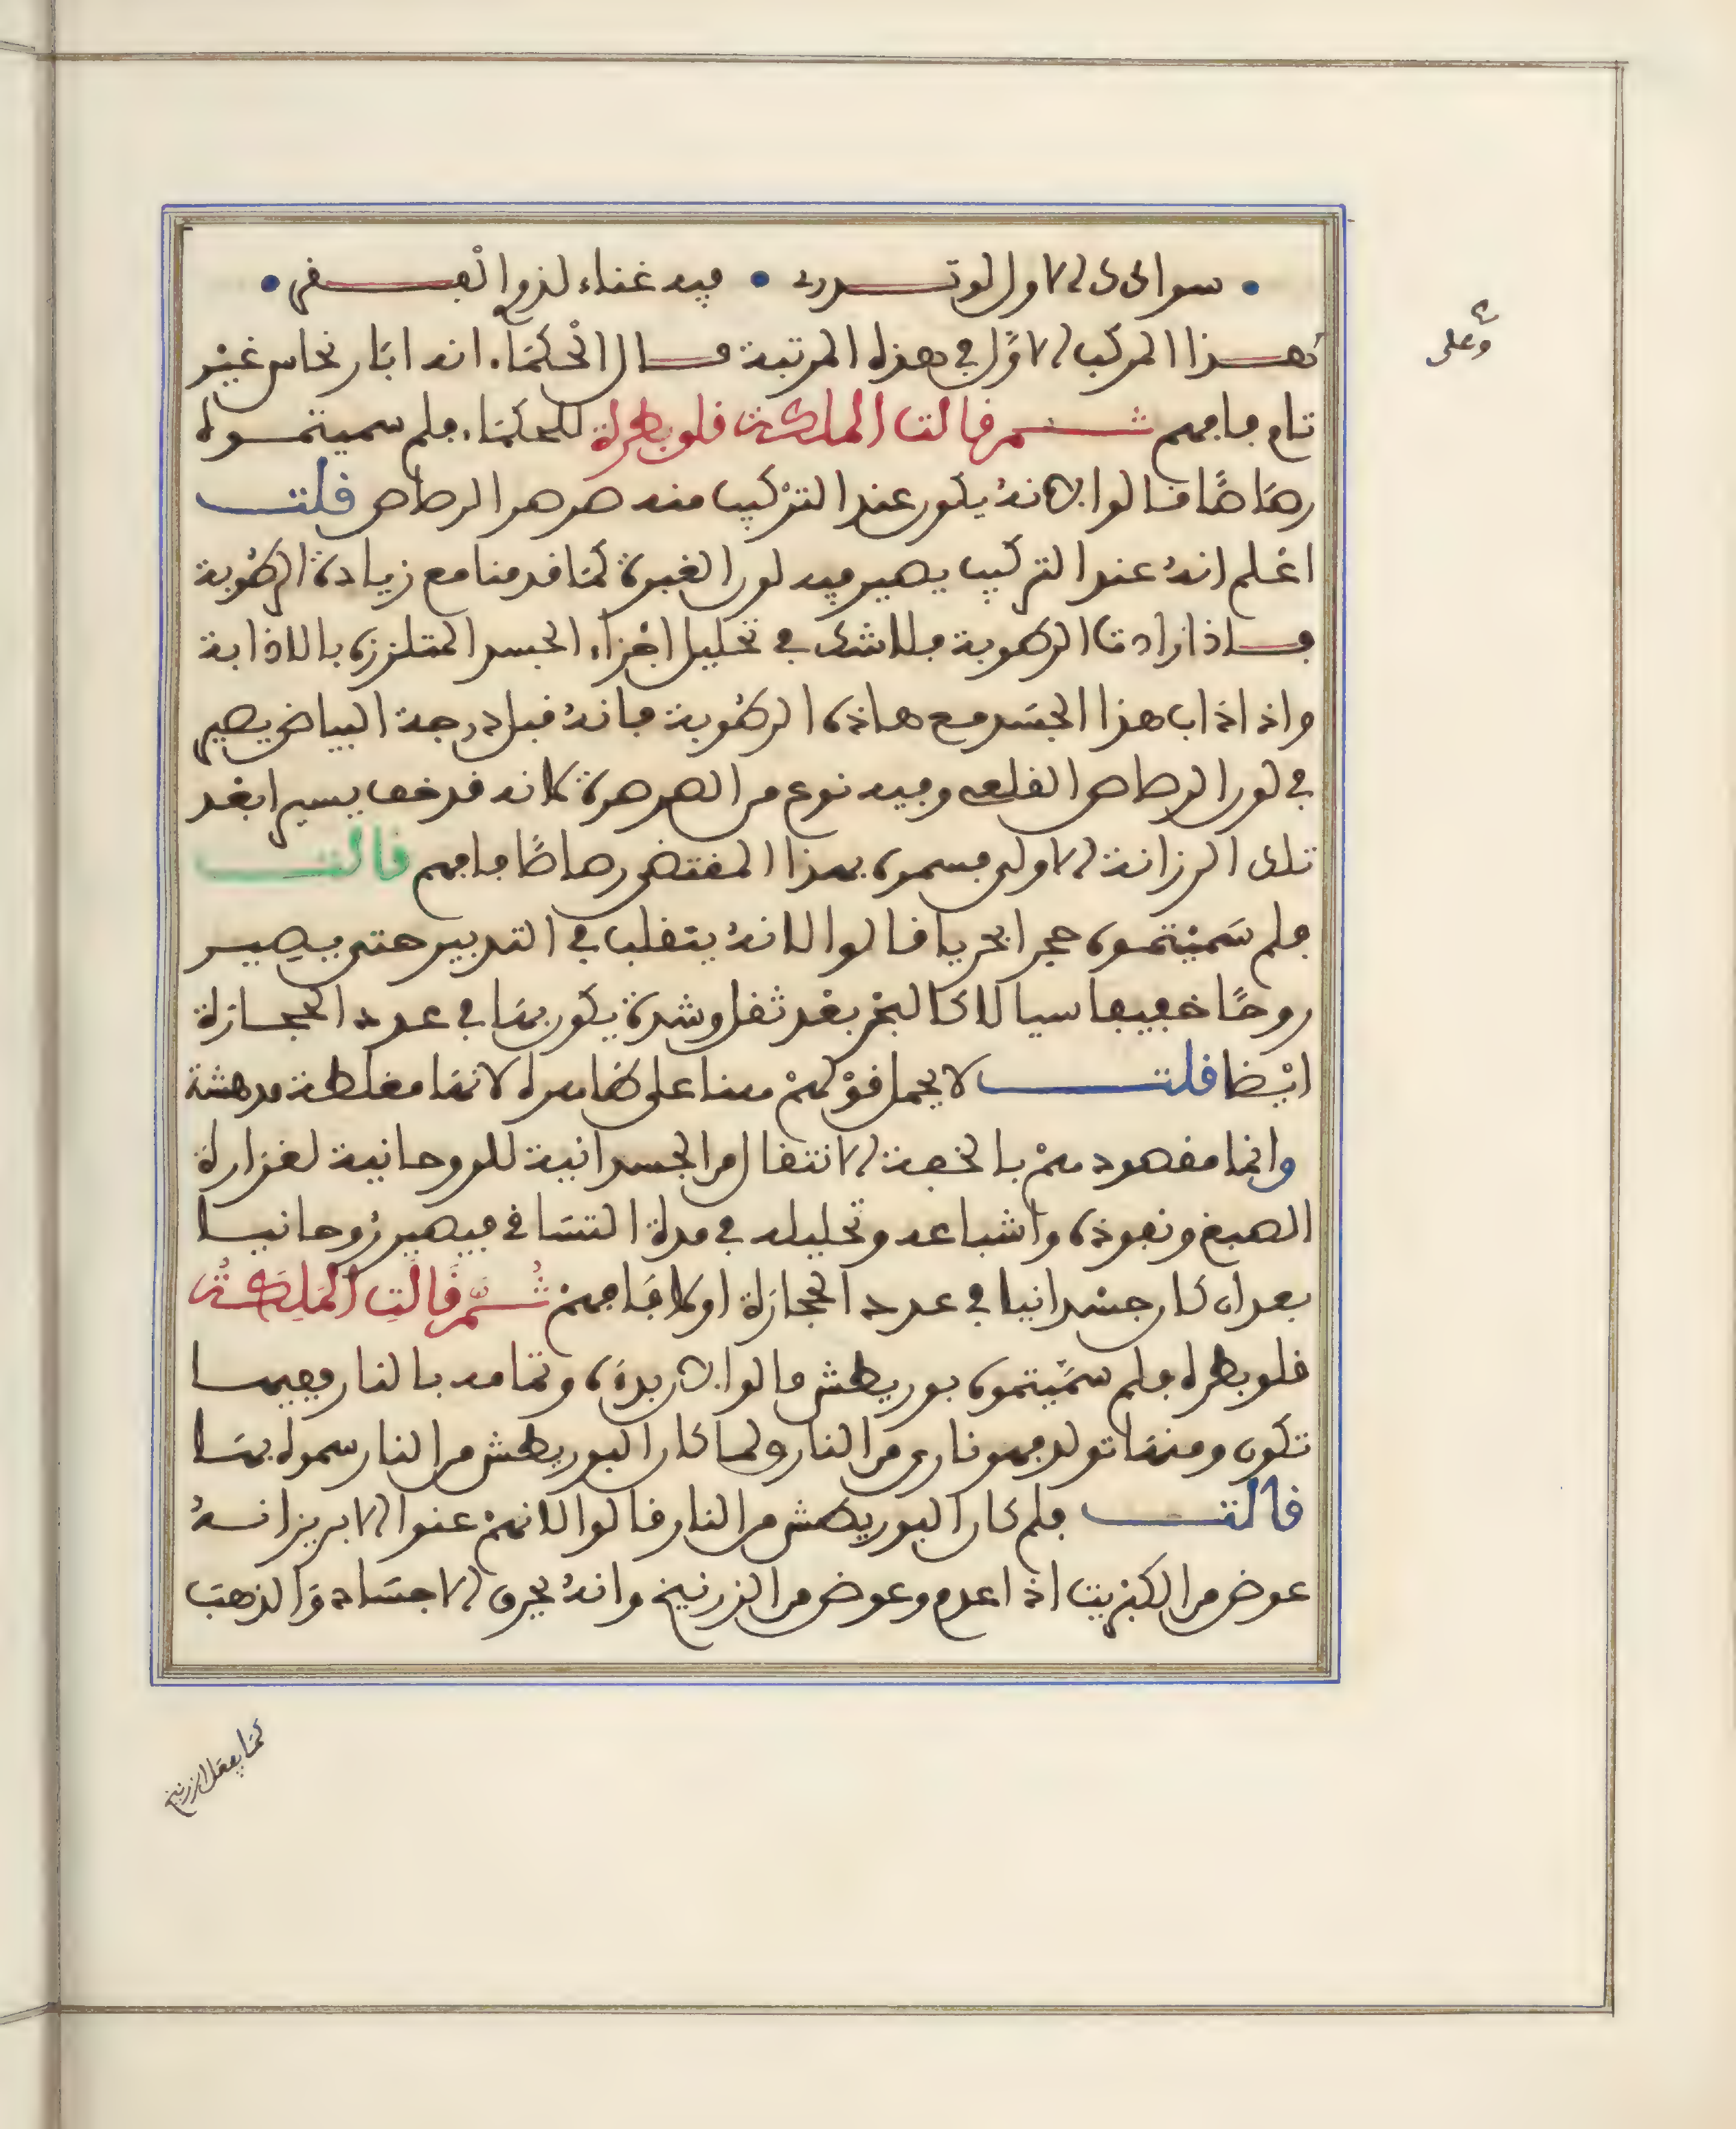 سوادك الاول لو تدريه • فيه غناء لذوي الفقر •
فهذا المركب الاول في هذه المرتبة قال الحكماء انه ابار نحاس غير
تام فافهم ثم قالت الملكة قلوبطرة للحكماء فلم سميتموه
رصاصا قالوا لانه يكون عند التركيب منه صرصر الرصاص قلت
اعلم انه عند التركيب يصير فيه لون الغبرة كما قدمنا مع زيادة الرطوبة
فاذا زادت الرطوبة فلا شك في تحليل اجزاء الجسد المتلززة بالاذابة
واذا ذاب هذا الجسد مع هاذه الرطوبة فانه قبل درجة البياض يصير
في لون الرصاص القلعي وفيه نوع من الصرصرة كانه قد خف يسيرا بعد
تلك الرزانة الاولى فسموه بهذا المقتضى رصاصا فافهم قالت
فلم سميتموه حجرا بحريا قالوا لانه يتقلب في التدبير حتى يصير
روحا خفيفا سيالا كالبحر بعد ثقل وشدة يكون بها في عدد الحجارة
ايضا قلت لا يحمل قولهم هنا على ظاهره لانها مغلطة مدهشة
وانما مقصودهم بالخفة الانتقال من الجسدانية للروحانية لغزارة
الصبغ ونفوذه واشباعه وتحليله في مدة التسافي فيصير روحانيا
بعد ان كان جسدانيا في عدد الحجارة اولا فافهم ثم قالت الملكة
قلوبطره فلم سميتموه بوريطش قالوا لان بدؤه وتمامه بالنار وفيها
تكون ومنها تولد فهو ناري من النار ولما كان البوريطش من النار سموه بها
قالت فلم كان البوريطش من النار قالوا لانهم عنوا الابريز انه
عوض من الكبريت اذا عدم وعوض من الزرنيخ وانه يحرق الاجساد والذهب
كما يفعل الزرنيخ
وعلى